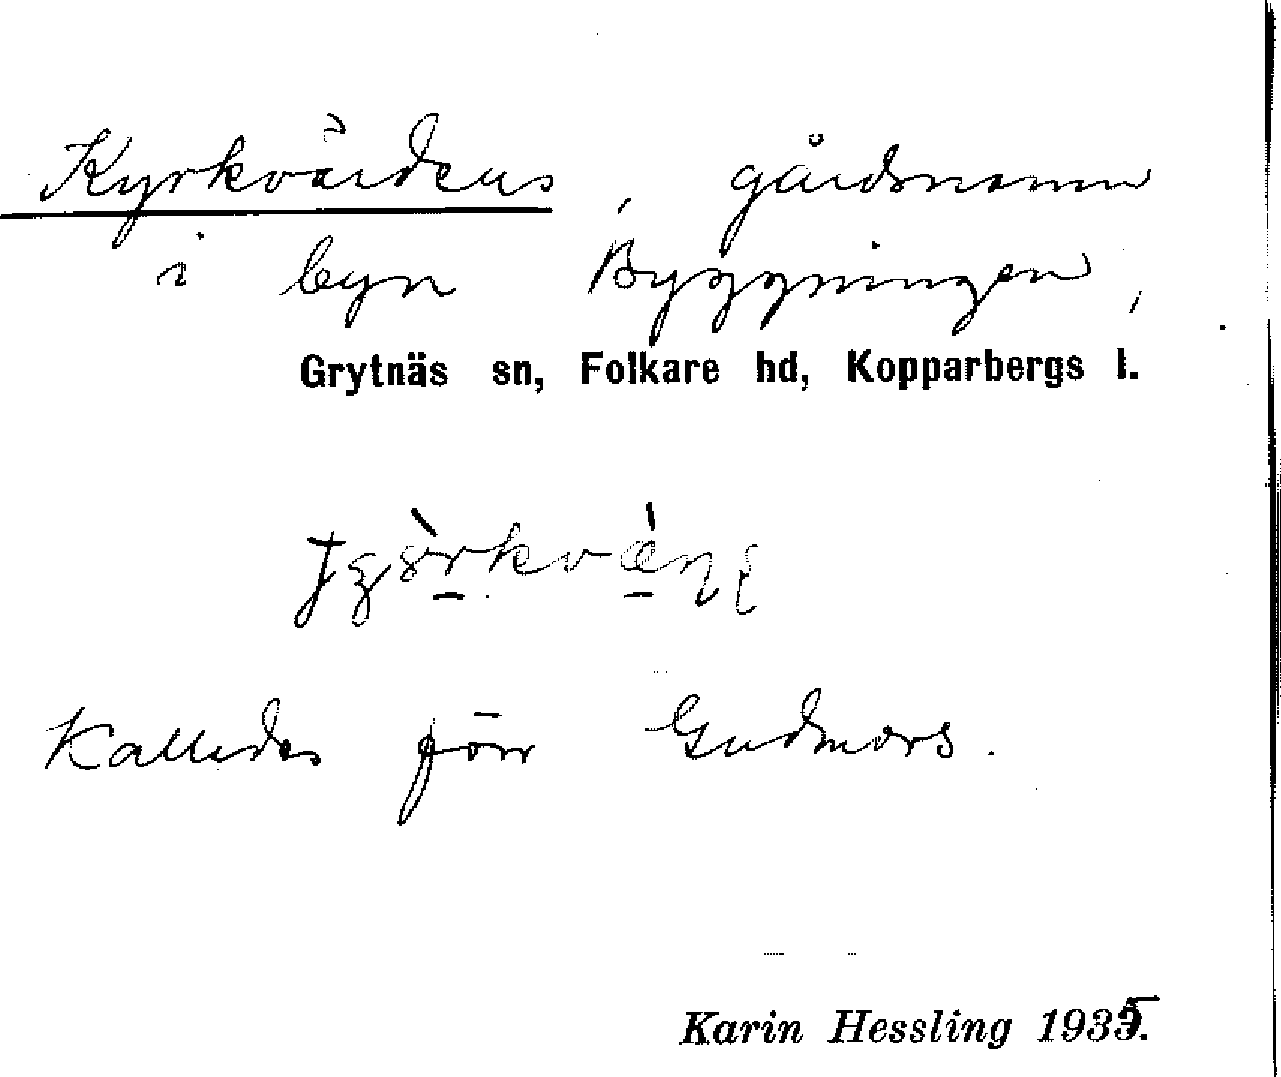 Kyrkvärdens, gårdsnamn
i byn Byggningen,
Grytnäs sn, Folkare hd, Kopparbergs l.
Kallades förr Gudmors.
Karin Hessling 1935.